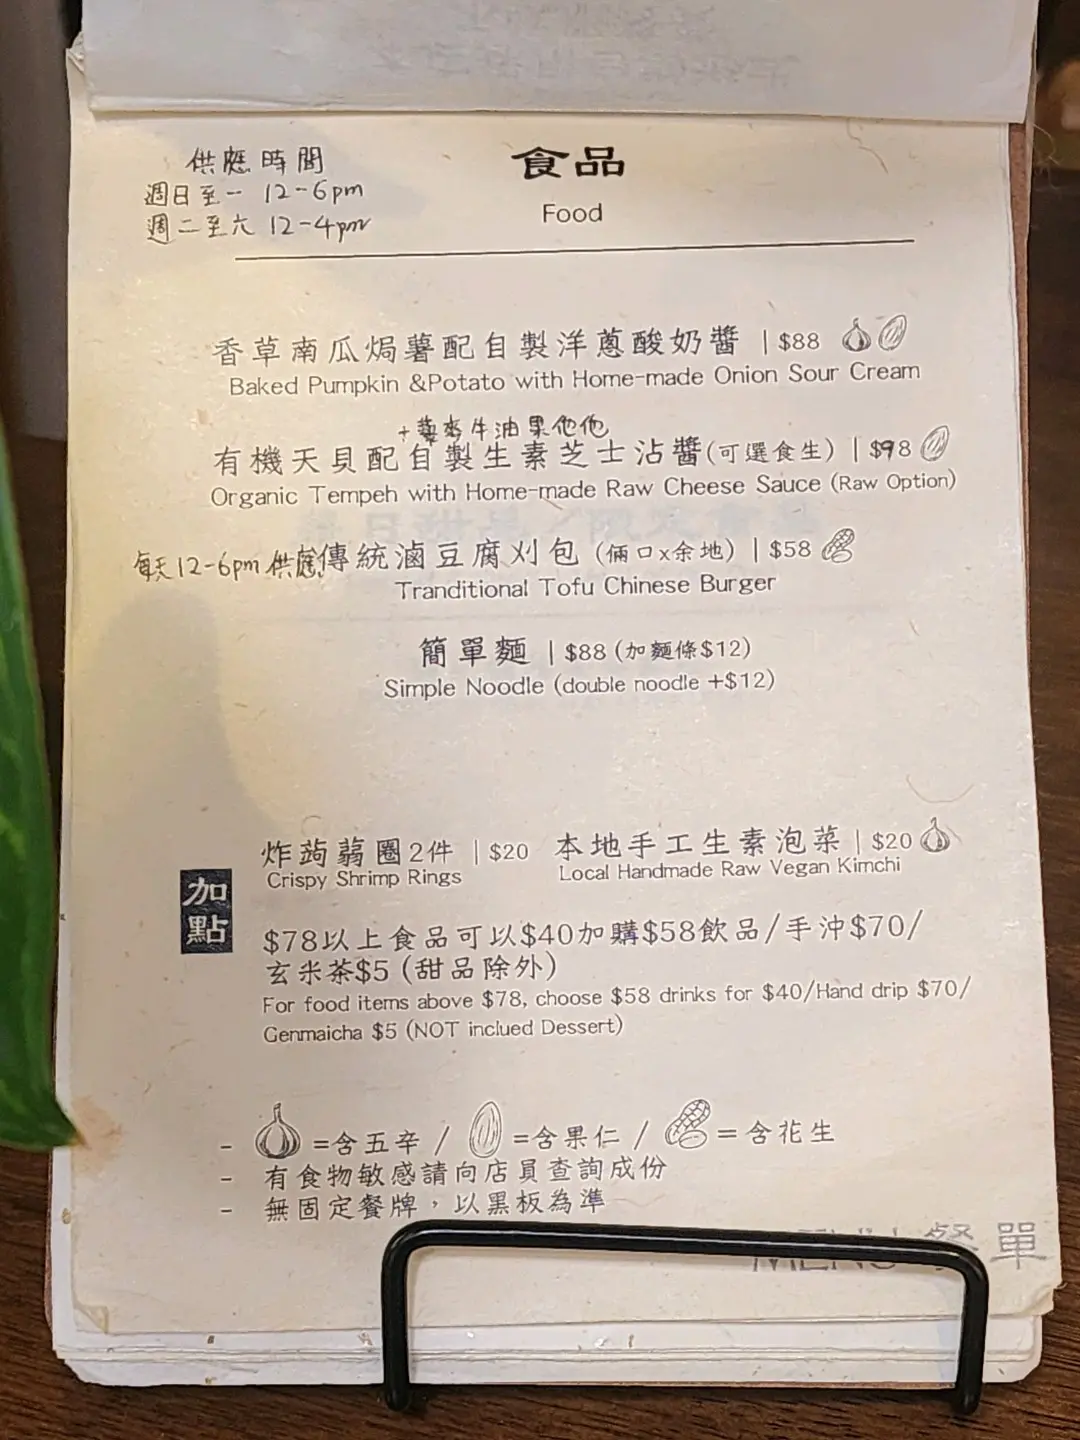 供應時間
週日至一 12-6pm
週二至六 12-4pm
食品
Food
香草南瓜焗薯配自製洋蔥酸奶醬 | $88
Baked Pumpkin &Potato with Home-made Onion Sour Cream
+藜麥牛油果他他
有機天貝配自製生素芝士沾醬(可選食生) | $98
Organic Tempeh with Home-made Raw Cheese Sauce (Raw Option)
每天12-6pm 供應
傳統滷豆腐刈包 (倆口x余地) | $58
Tranditional Tofu Chinese Burger
簡單麵 | $88 (加麵條$12)
Simple Noodle (double noodle +$12)
加點
炸蒟蒻圈2件 | $20
Crispy Shrimp Rings
本地手工生素泡菜 | $20
Local Handmade Raw Vegan Kimchi
$78以上食品可以$40加購$58飲品/手沖$70/
玄米茶$5 (甜品除外)
For food items above $78, choose $58 drinks for $40/Hand drip $70/
Genmaicha $5 (NOT inclued Dessert)
- =含五辛 / =含果仁 / =含花生
- 有食物敏感請向店員查詢成份
- 無固定餐牌，以黑板為準
MENU 餐單